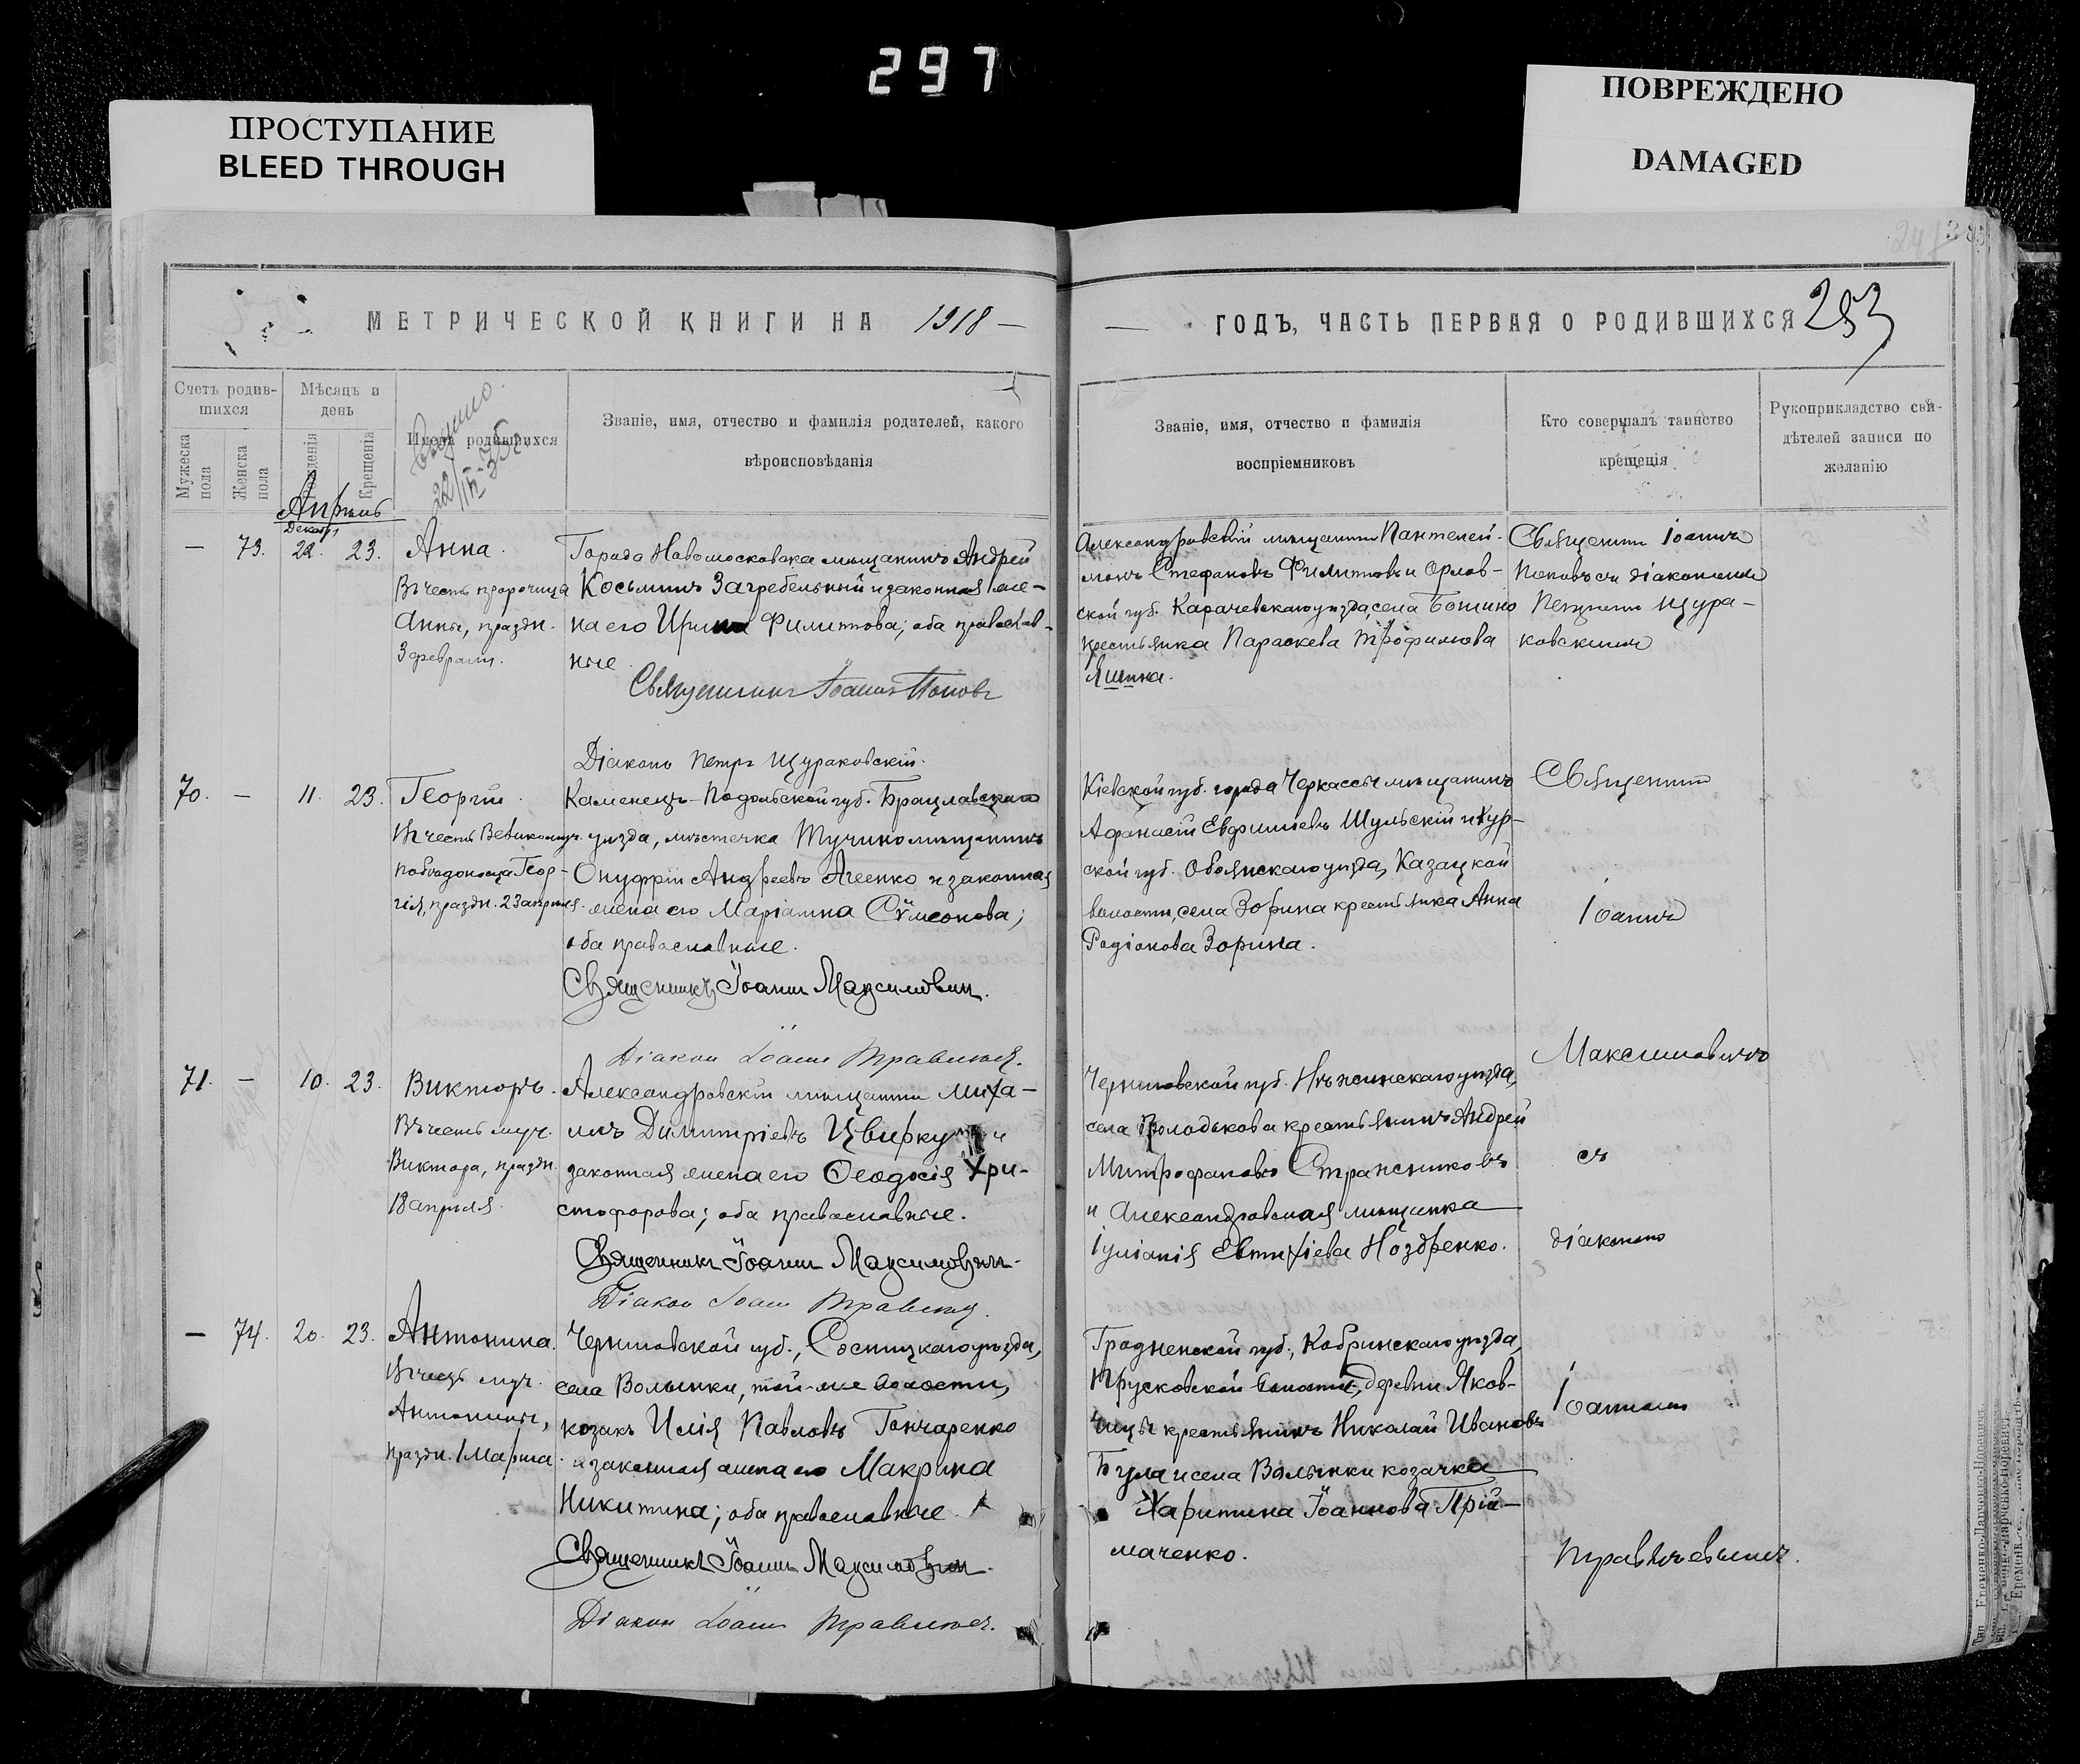 297
ПРОСТУПАНИЕ
BLEED THROUGH
ПОВРЕЖДЕНО
DAMAGED
МЕТРИЧЕСКОЙ КНИГИ НА 1918 —
Счетъ родив-
шихся
Мужеска
пола
Женска
пола
Мѣсяцъ и
день
Крещенія
Имена родившихся
22/III-35
Званіе, имя, отчество и фамилія родителей, какого
вѣроисповѣданія
Апрѣль
Декабр
— 73. 22. 23. Анна.
Въ честь пророчицы
Анны, праздн.
3 февраля.
Города Новомосковска мѣщанинъ Андрей
Косьминъ Загребельный и законная же-
на его Ирина Филиппова; оба православ-
ные
Священникъ Іоаннъ Поповъ
Діаконъ Петръ Щураковскій.
70. — 11. 23. Георгій.
Въ честь Великомуч.
побѣдоносца Геор-
гія, праздн. 23 апрѣля.
Каменецъ-Подольской губ. Брацлавскаго
уѣзда, мѣстечка Тучино мѣщанинъ
Онуфрій Андреевъ Агеенко и законная
жена его Маріанна Сѵмеонова;
оба православные.
Священникъ Іоаннъ Максимовичъ.
Діаконъ Іоаннъ
71. — 10. 23. Викторъ.
Въ честь муч.
Виктора, праздн.
18 апрѣля.
Александровскій мѣщанинъ Миха-
илъ Димитріевъ Цвиркунъ и
законная жена его Ѳеодосія Хри-
стофорова; оба православные.
Священникъ Іоаннъ Максимовичъ.
Діаконъ Іоаннъ
— 74. 20. 23. Антонина.
Въ честь муч.
Антонины,
праздн. 1 Марта.
Черниговской губ., Сосницкаго уѣзда,
села Волынки, той-же волости,
козакъ Илія Павловъ Гончаренко
и законная жена его Макрина
Никитина; оба православные.
Священникъ Іоаннъ Максимовичъ.
Діаконъ Іоаннъ
— ГОДЪ, ЧАСТЬ ПЕРВАЯ О РОДИВШИХСЯ 253
Званіе, имя, отчество и фамилія
воспріемниковъ
Кто совершалъ таинство
крещенія
Рукоприкладство сви-
дѣтелей записи по
желанію
Александровскій мѣщанинъ Пантелей-
монъ Стефановъ Филипповъ и Орлов-
ской губ. Карачевскаго уѣзда, села Бошино
крестьянка Параскева Трофимова
Яшина.
Священникъ Іоаннъ
Поповъ съ діакономъ
Петромъ Щура-
ковскимъ
Кіевской губ. города Черкассы мѣщанинъ
Афанасій Евфиміевъ Шульскій и Кур-
ской губ. Обоянскаго уѣзда, Казацкой
волости, села Зорина крестьянка Анна
Родіонова Зорина.
Священникъ
Іоаннъ
Максимовичъ
Черниговской губ. Нѣжинскаго уѣзда,
села Володькова крестьянинъ Андрей
Митрофановъ Странсниковъ
и Александровская мѣщанка
Іуліанія Евтихіева Ноздренко.
съ
діакономъ
Гродненской губ., Кобринскаго уѣзда,
Прусковской волости, деревни Яков-
чицы крестьянинъ Николай Ивановъ
Була и села Волынки козачка
Харитина Іоаннова Прій-
маченко.
Іоанномъ